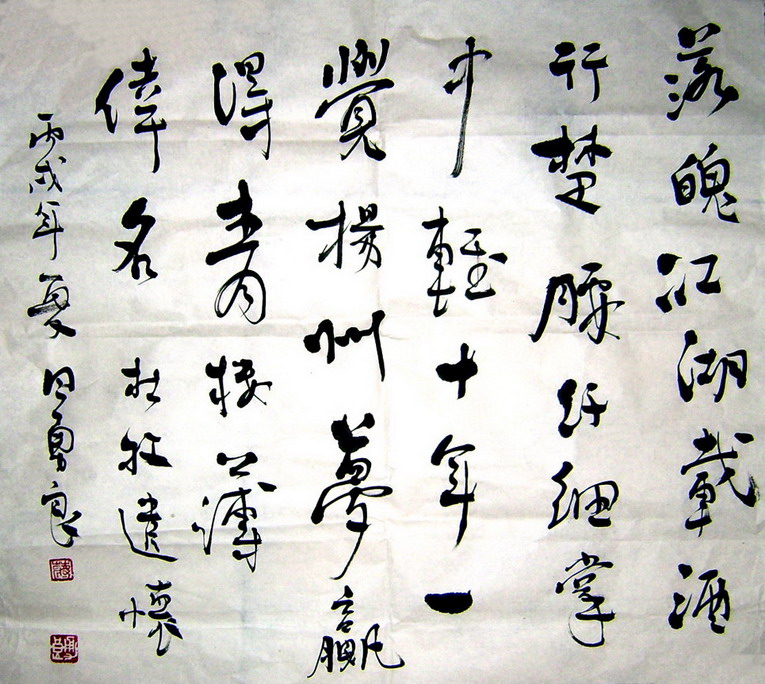 落魄江湖載酒
行楚腰纤細掌
中輕十年一
覺揚州夢贏
得青楼薄
倖名 杜牧遣懷
丙戌年夏 勇良